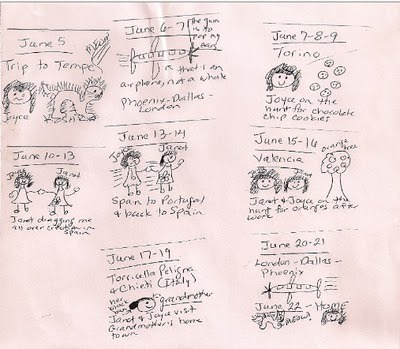 June 5
Trip to Tempe
meow!
Joyce
June 6-7
the gum
is to
pop my
ears
is that is an
airplane, not a whale
Phoenix-Dallas-
London
June 7-8-9
Torino
Joyce on the
hunt for chocolate
chip cookies
June 10-13
Janet
Janet dragging me
all over creation in
Spain
June 13-14
Janet
Spain to Portugal
& back to Spain
June 15-16
orange
tree
Valencia
Janet & Joyce on the
hunt for oranges after
work
June 17-19
Torricella Peligna
& Chieti (Italy)
her
blue
bump
grandmother
Janet & Joyce visit
Grandmother's home
town
June 20-21
London-Dallas-
Phoenix
June 22 - HOME
meow!